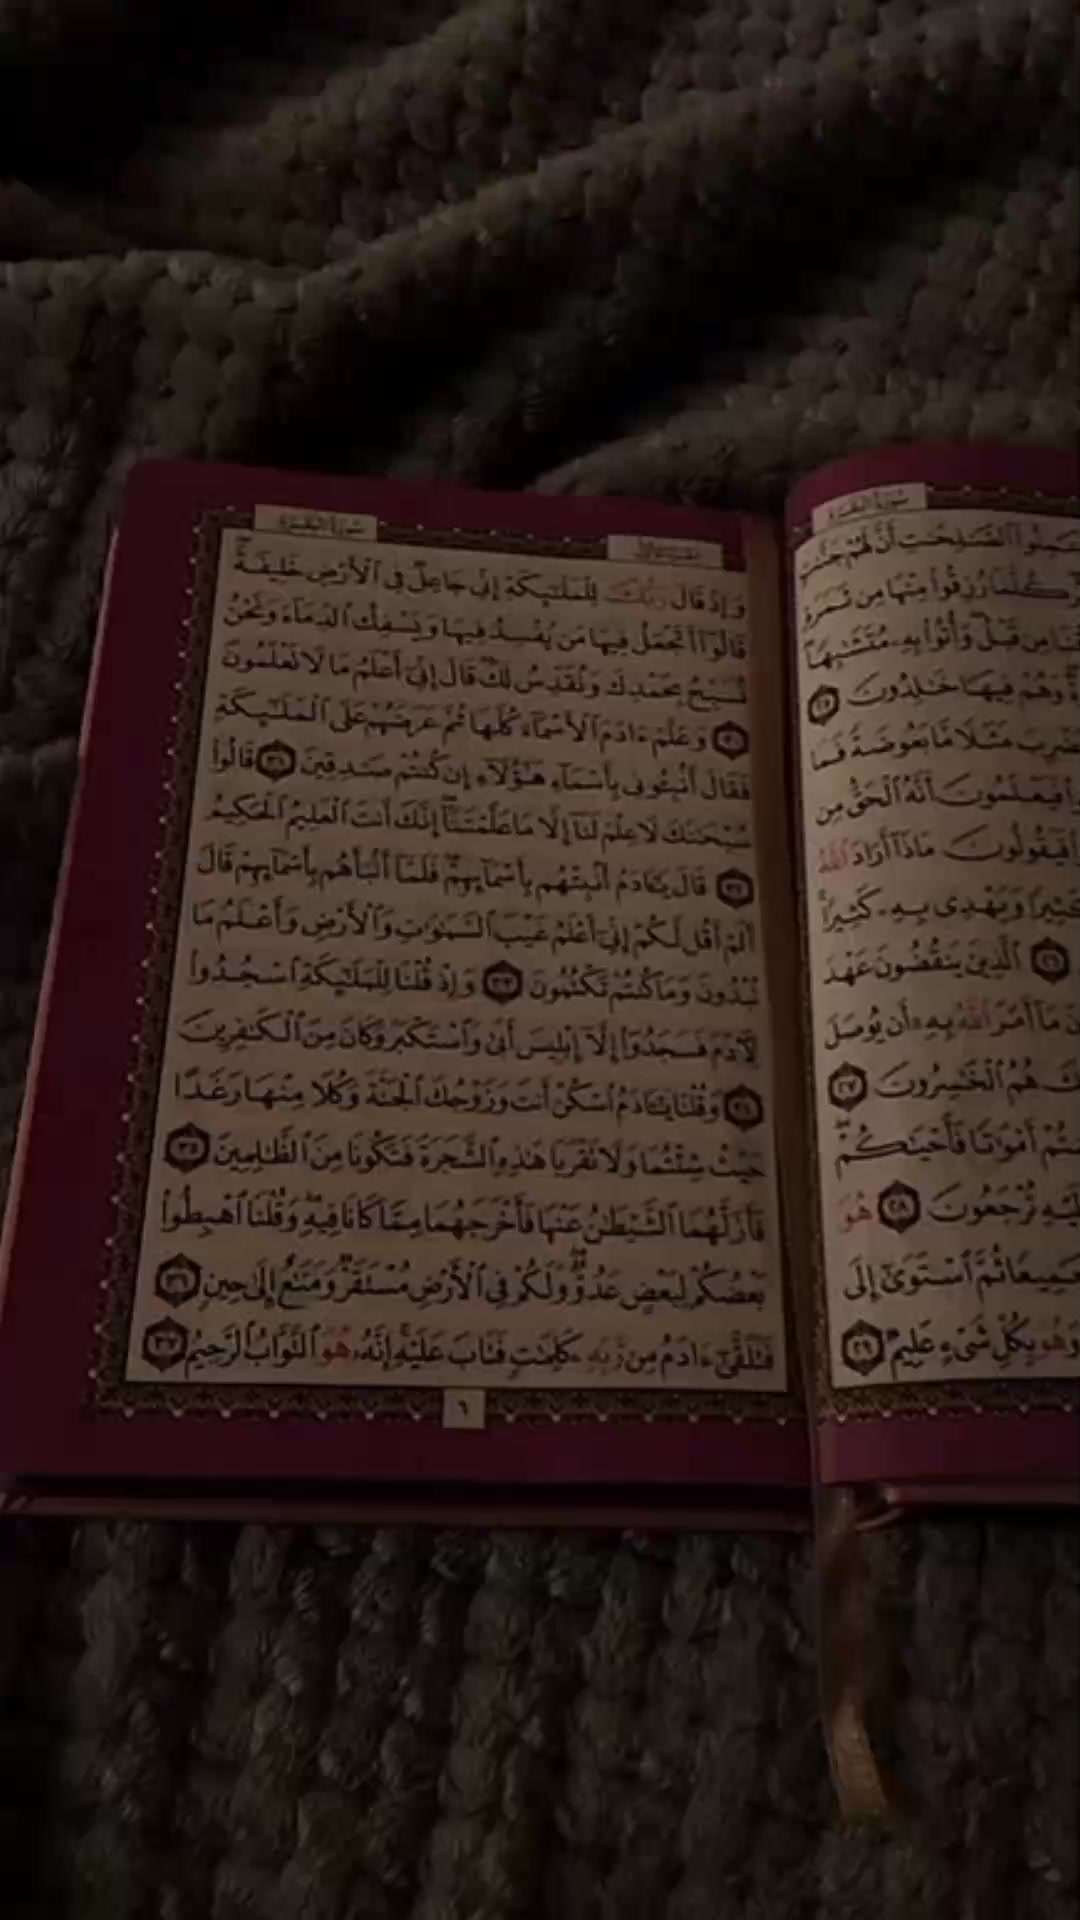 سورة البقرة
عَمِلُوا۟ ٱلصَّـٰلِحَـٰتِ أَنَّ لَهُمْ جَنَّـٰتٍ
كُلَّمَا رُزِقُوا۟ مِنْهَا مِن ثَمَرَةٍ
مِن قَبْلُ وَأُتُوا۟ بِهِۦ مُتَشَـٰبِهًا
وَهُمْ فِيهَا خَـٰلِدُونَ ٢٥
مَثَلًا مَّا بَعُوضَةً فَمَا
فَيَعْلَمُونَ أَنَّهُ ٱلْحَقُّ مِن
فَيَقُولُونَ مَاذَآ أَرَادَ ٱللَّهُ
كَثِيرًا وَيَهْدِى بِهِۦ كَثِيرًا
٢٦ ٱلَّذِينَ يَنقُضُونَ عَهْدَ
مَآ أَمَرَ ٱللَّهُ بِهِۦٓ أَن يُوصَلَ
هُمُ ٱلْخَـٰسِرُونَ ٢٧
أَمْوَٰتًا فَأَحْيَـٰكُمْ
تُرْجَعُونَ ٢٨ هُوَ
ثُمَّ ٱسْتَوَىٰٓ إِلَى
وَهُوَ بِكُلِّ شَىْءٍ عَلِيمٌ ٢٩
سورة البقرة
وَإِذْ قَالَ رَبُّكَ لِلْمَلَـٰٓئِكَةِ إِنِّى جَاعِلٌ فِى ٱلْأَرْضِ خَلِيفَةً
قَالُوٓا۟ أَتَجْعَلُ فِيهَا مَن يُفْسِدُ فِيهَا وَيَسْفِكُ ٱلدِّمَآءَ وَنَحْنُ
نُسَبِّحُ بِحَمْدِكَ وَنُقَدِّسُ لَكَ قَالَ إِنِّىٓ أَعْلَمُ مَا لَا تَعْلَمُونَ
٣٠ وَعَلَّمَ ءَادَمَ ٱلْأَسْمَآءَ كُلَّهَا ثُمَّ عَرَضَهُمْ عَلَى ٱلْمَلَـٰٓئِكَةِ
فَقَالَ أَنۢبِـُٔونِى بِأَسْمَآءِ هَـٰٓؤُلَآءِ إِن كُنتُمْ صَـٰدِقِينَ ٣١ قَالُوا۟
سُبْحَـٰنَكَ لَا عِلْمَ لَنَآ إِلَّا مَا عَلَّمْتَنَآ إِنَّكَ أَنتَ ٱلْعَلِيمُ ٱلْحَكِيمُ
٣٢ قَالَ يَـٰٓـَٔادَمُ أَنۢبِئْهُم بِأَسْمَآئِهِمْ فَلَمَّآ أَنۢبَأَهُم بِأَسْمَآئِهِمْ قَالَ
أَلَمْ أَقُل لَّكُمْ إِنِّىٓ أَعْلَمُ غَيْبَ ٱلسَّمَـٰوَٰتِ وَٱلْأَرْضِ وَأَعْلَمُ مَا
تُبْدُونَ وَمَا كُنتُمْ تَكْتُمُونَ ٣٣ وَإِذْ قُلْنَا لِلْمَلَـٰٓئِكَةِ ٱسْجُدُوا۟
لِـَٔادَمَ فَسَجَدُوٓا۟ إِلَّآ إِبْلِيسَ أَبَىٰ وَٱسْتَكْبَرَ وَكَانَ مِنَ ٱلْكَـٰفِرِينَ
٣٤ وَقُلْنَا يَـٰٓـَٔادَمُ ٱسْكُنْ أَنتَ وَزَوْجُكَ ٱلْجَنَّةَ وَكُلَا مِنْهَا رَغَدًا
حَيْثُ شِئْتُمَا وَلَا تَقْرَبَا هَـٰذِهِ ٱلشَّجَرَةَ فَتَكُونَا مِنَ ٱلظَّـٰلِمِينَ ٣٥
فَأَزَلَّهُمَا ٱلشَّيْطَـٰنُ عَنْهَا فَأَخْرَجَهُمَا مِمَّا كَانَا فِيهِ وَقُلْنَا ٱهْبِطُوا۟
بَعْضُكُمْ لِبَعْضٍ عَدُوٌّ وَلَكُمْ فِى ٱلْأَرْضِ مُسْتَقَرٌّ وَمَتَـٰعٌ إِلَىٰ حِينٍ ٣٦
فَتَلَقَّىٰٓ ءَادَمُ مِن رَّبِّهِۦ كَلِمَـٰتٍ فَتَابَ عَلَيْهِ إِنَّهُۥ هُوَ ٱلتَّوَّابُ ٱلرَّحِيمُ ٣٧
٦